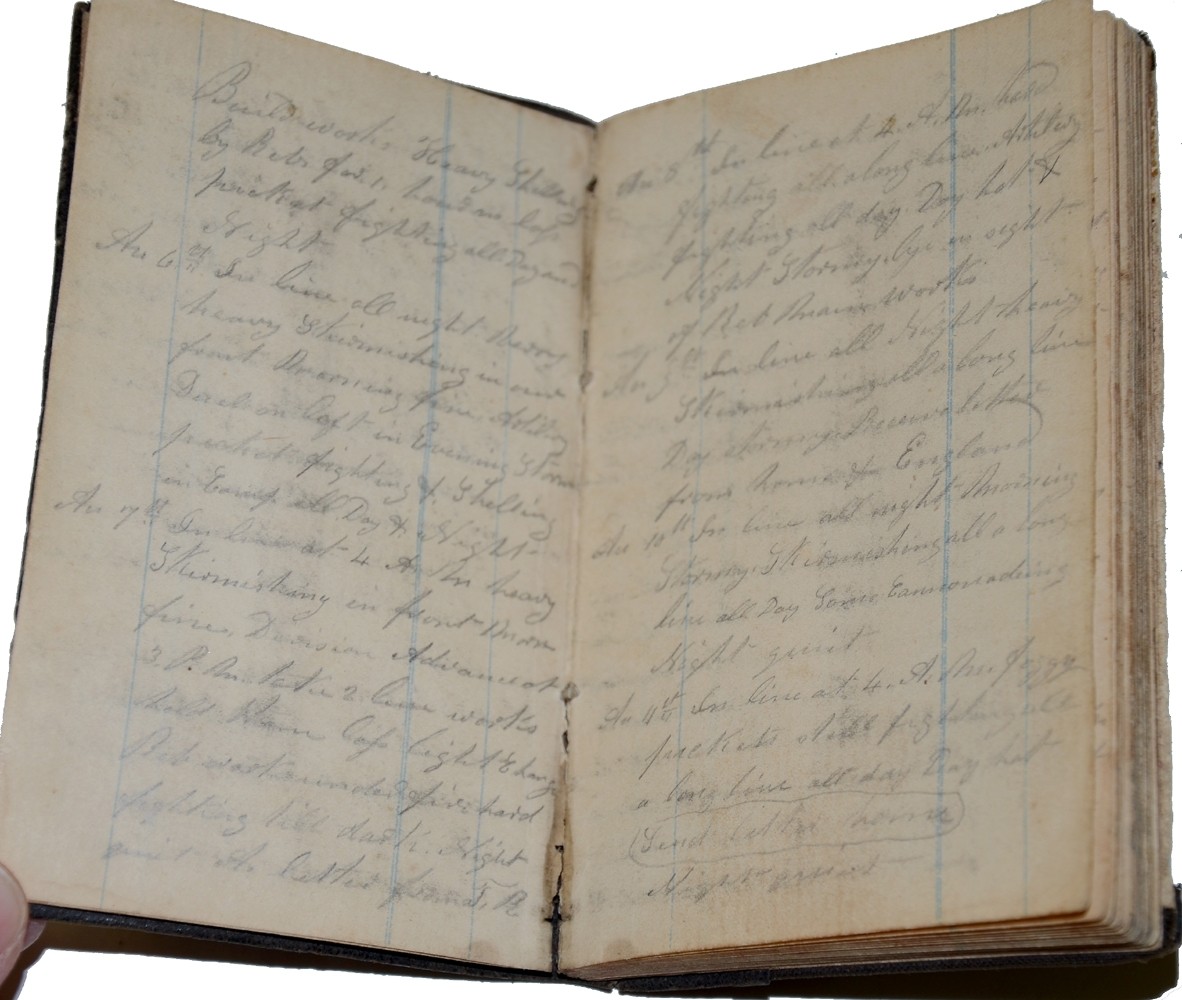 Build works Heavy Shelling
by Rebs for 1 hour no loss
picket fighting all Day and
Night
Au 6th In line all night Heavy
heavy Skirmishing in our
front Morning fine Artilery
Duel on Left in Evening Storm
picket fighting & Shelling
in Camp all Day & Night
Au 7th In line at 4 A. M. heavy
Skirmishing in front Morn
fine, Division Advance at
3. P. M. take 2 line works
hold them loss light Charge
Reb works under fire hard
fighting till dark. Night
quiet letter from
Au 8th In line at 4. A. M. hard
fighting all along line Artilery
fighting all day. Day hot &
Night Stormy. lye in sight
of Reb Main Works
Au 9th In line all Night heavy
Skirmishing all a long line
Day stormy. Receive letter
from home & England
Au 10th In line all night Morning
Stormy. Skirmishing all a long
line all Day Some Cannonading
Night quiet
Au 11th In line at 4. A. M. foggy
pickets still fighting all
a long line all day Day hot
Send letter home
Night quiet